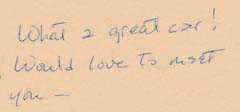 What a great car!
Would love to meet
you —